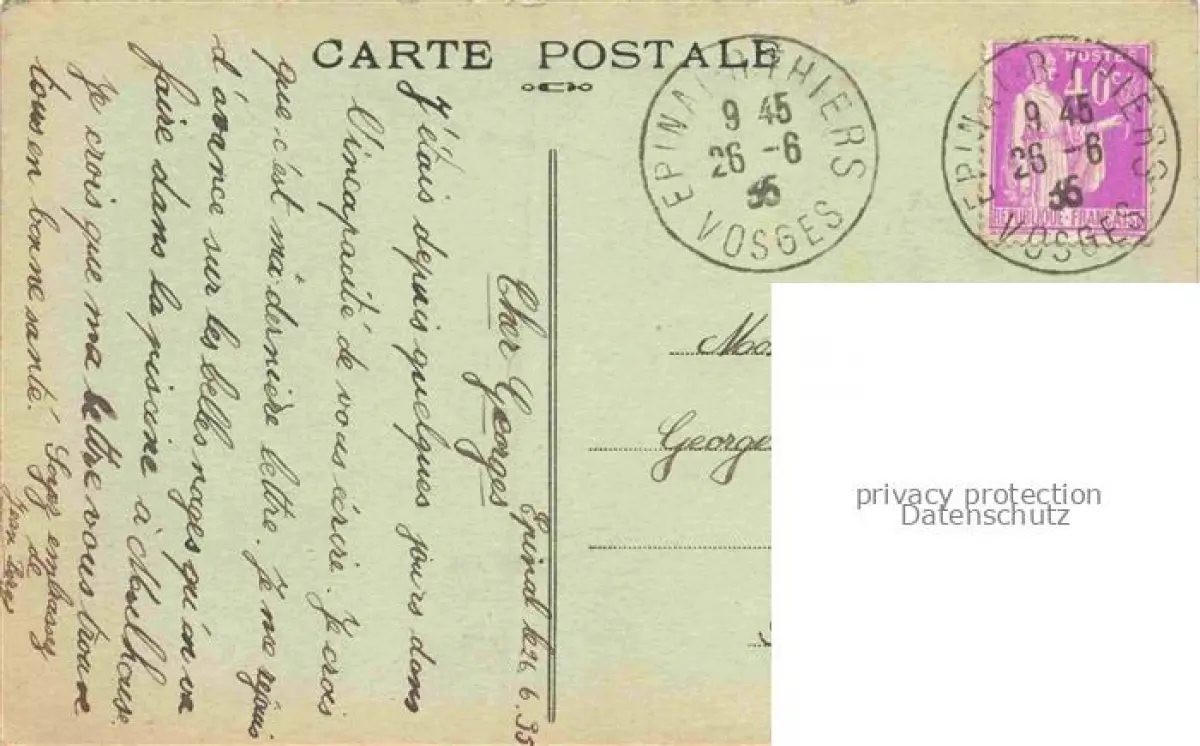 CARTE POSTALE
EPINAL R. THIERS
9 45
26 -6
35
VOSGES
POSTES
40c
RÉPUBLIQUE-FRANÇAISE
EPINAL R. THIERS
9 45
26 -6
36
VOSGES
Epinal le 26. 6. 35
Cher Georges
J'étais depuis quelques jours dans
l'incapacité de vous écrire. Je crois
que c'est ma dernière lettre. Je me rejouis
d'avance sur les belles nages qu'on va
faire dans la piscine à Mulhouse.
Je crois que ma lettre vous trouve
tous en bonne santé. Soyez embrassez
de
Jean
Georges
privacy protection
Datenschutz